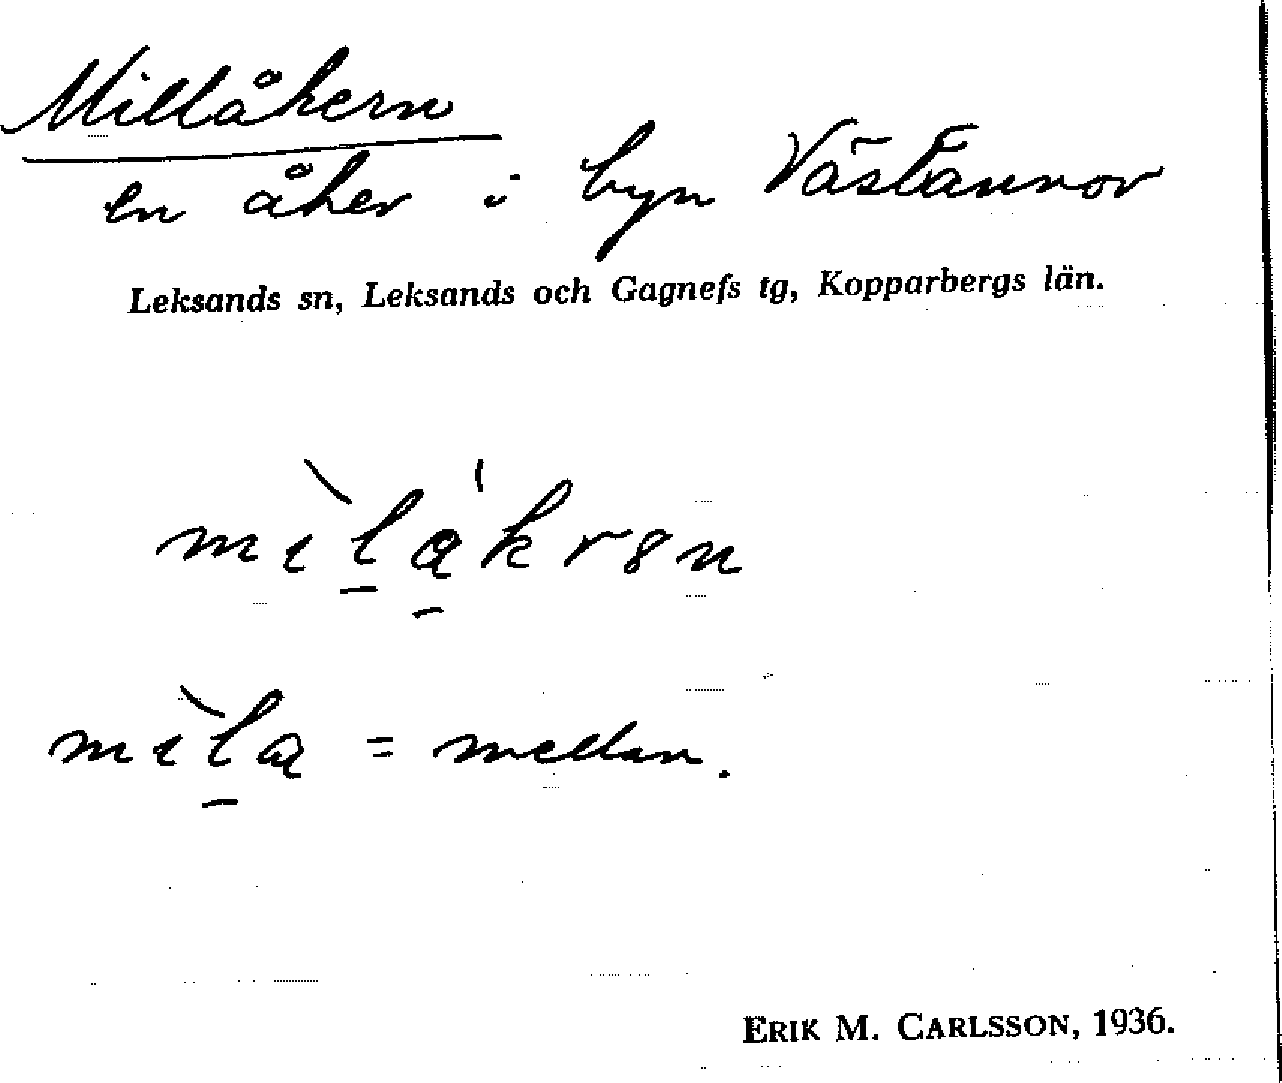 Millåkern
en åker i byn Västannor
Leksands sn, Leksands och Gagnefs tg, Kopparbergs län.
mɩ̀lą́krɵn
mɩ̀lą = mellan.
ERIK M. CARLSSON, 1936.